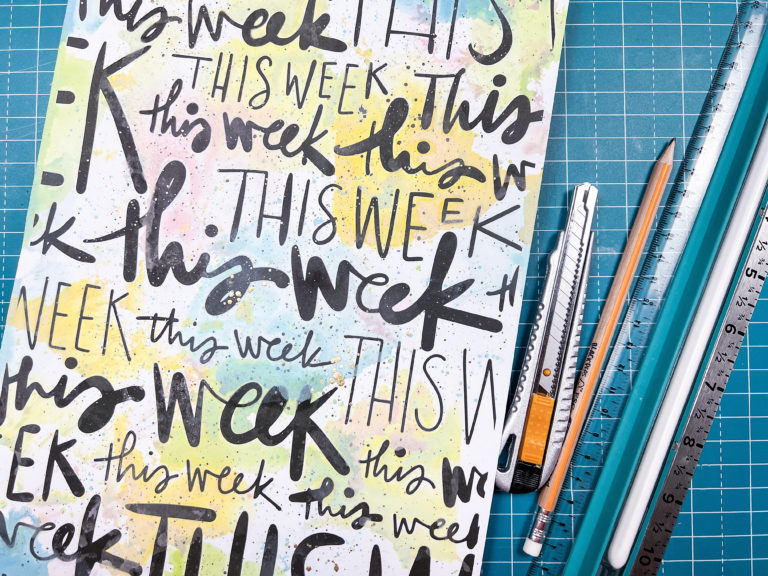 this week THIS
THIS WEEK This
K this week this w
THIS WEEK
K this week th
WEEK this week THIS W
this week this we
EEK this week this week
week THIS W
5
6
7
8
9
10